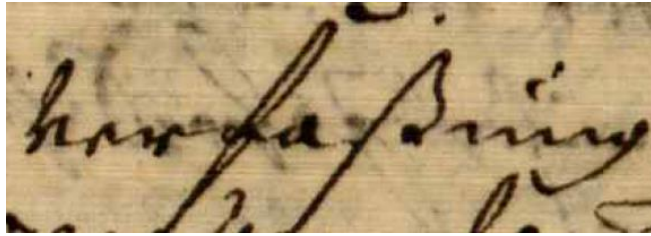 verfaßung